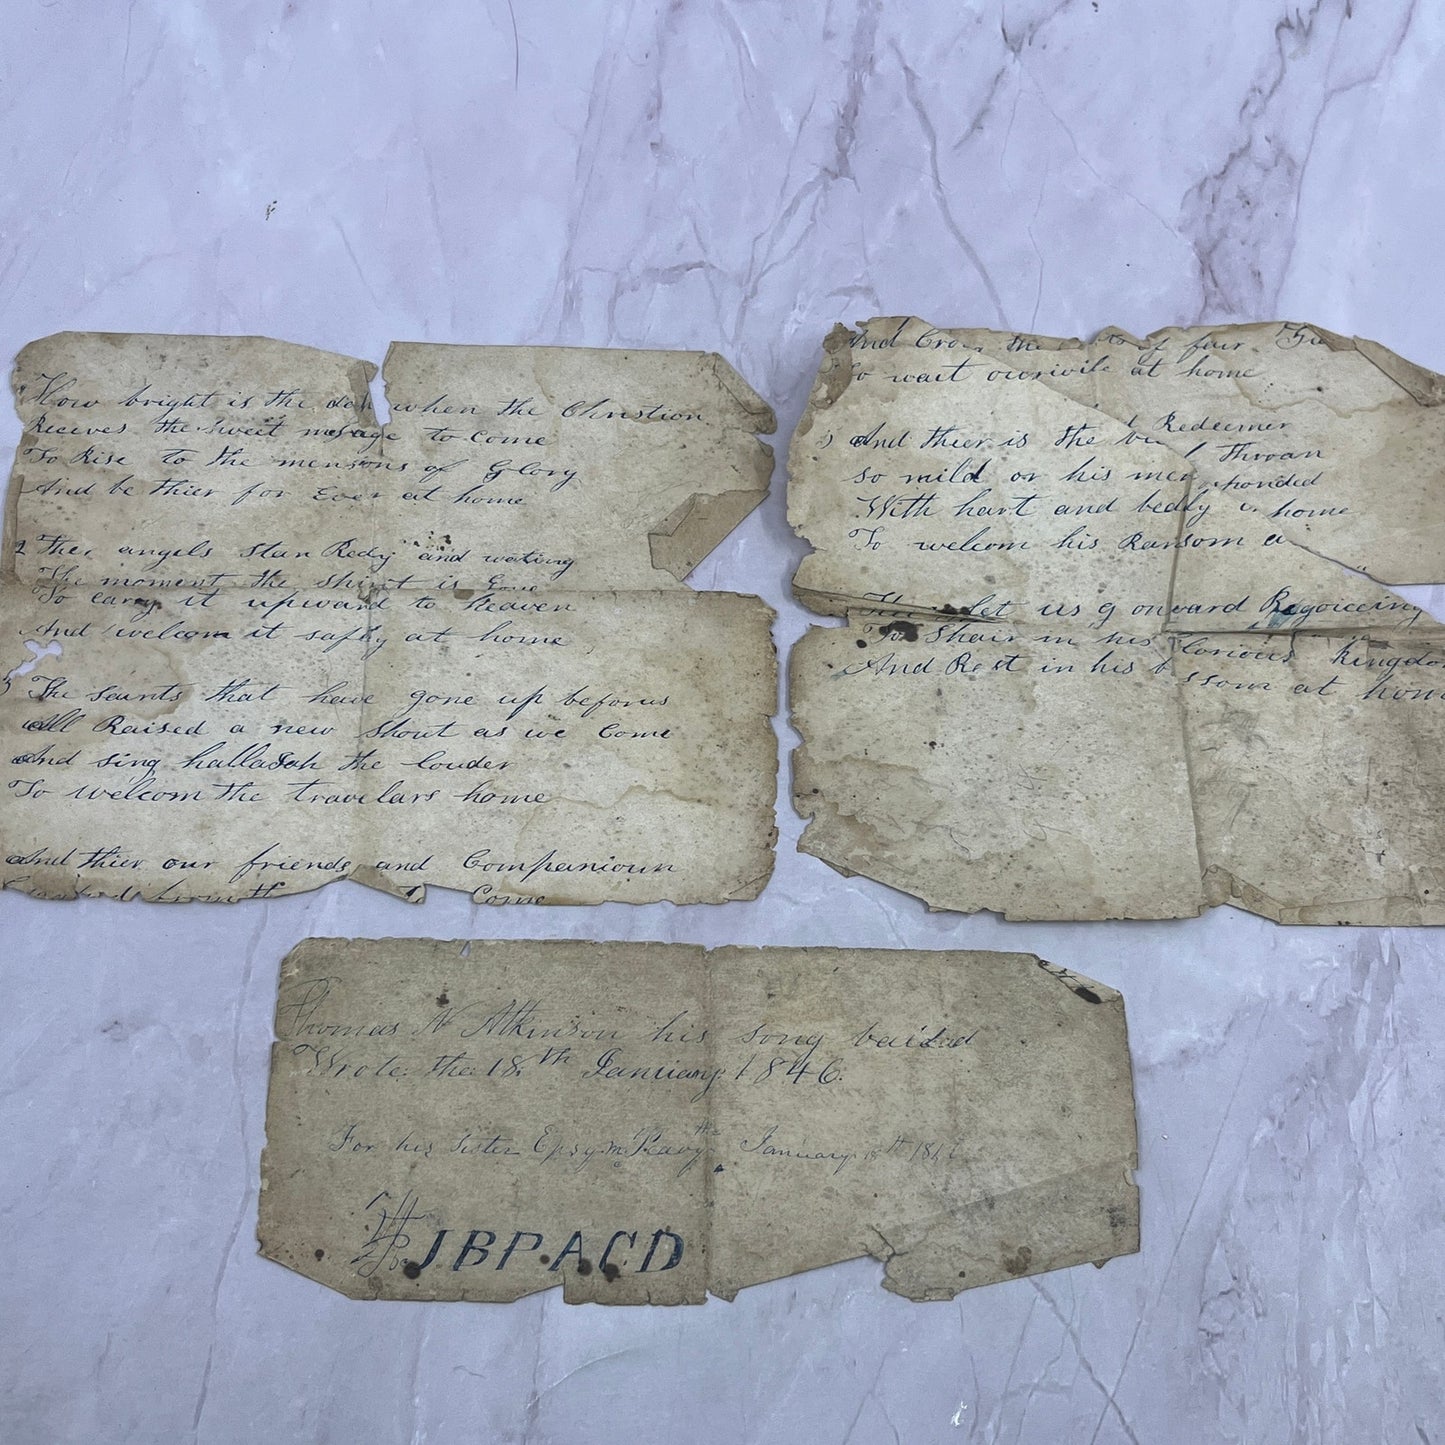 How bright is the day when the Christion
Receves the sweit mesage to come
To Rise to the mensions of Glory
And be thier for Ever at home
2 Ther angels stan Redy and wating
The moment the spirit is gone
To carry it upward to Heaven
And welcom it safly at home
3 The saints that have gone up beforus
All Raised a new shout as we Come
And sing hallaJah the louder
To welcom the travelars home
And thier our friends and Companioun
from th Come
And the of fair
wait at home
5 And thier is the Redeemer
so mild on his mer Throan
With hart and bedly handed
To welcom his Ransom a home
let us g onward Rejoiceing
To Shair in his Glorious Kingdo
And Rest in his b ssom at hom
Thomas N Atkinson his song
Wrote the 18th January 1846.
For his sister January 18th
JBPACD